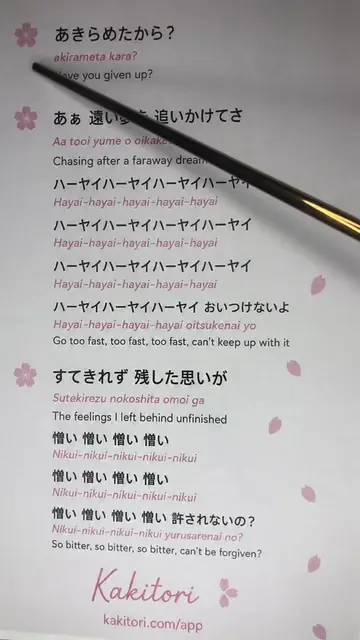 あきらめたから？
akirameta kara?
Have you given up?
あぁ 遠い夢を 追いかけてさ
Aa tooi yume o oikakete
Chasing after a faraway dream
ハーヤイハーヤイハーヤイハーヤイ
Hayai-hayai-hayai-hayai-hayai
ハーヤイハーヤイハーヤイハーヤイ
Hayai-hayai-hayai-hayai-hayai
ハーヤイハーヤイハーヤイハーヤイ
Hayai-hayai-hayai-hayai-hayai
ハーヤイハーヤイハーヤイ おいつけないよ
Hayai-hayai-hayai-hayai oitsukenai yo
Go too fast, too fast, too fast, can't keep up with it
すてきれず 残した思いが
Sutekirezu nokoshita omoi ga
The feelings I left behind unfinished
憎い 憎い 憎い 憎い
Nikui-nikui-nikui-nikui-nikui
憎い 憎い 憎い 憎い
Nikui-nikui-nikui-nikui-nikui
憎い 憎い 憎い 憎い 許されないの？
Nikui-nikui-nikui-nikui-nikui yurusarenai no?
So bitter, so bitter, so bitter, can't be forgiven?
Kakitori
kakitori.com/app